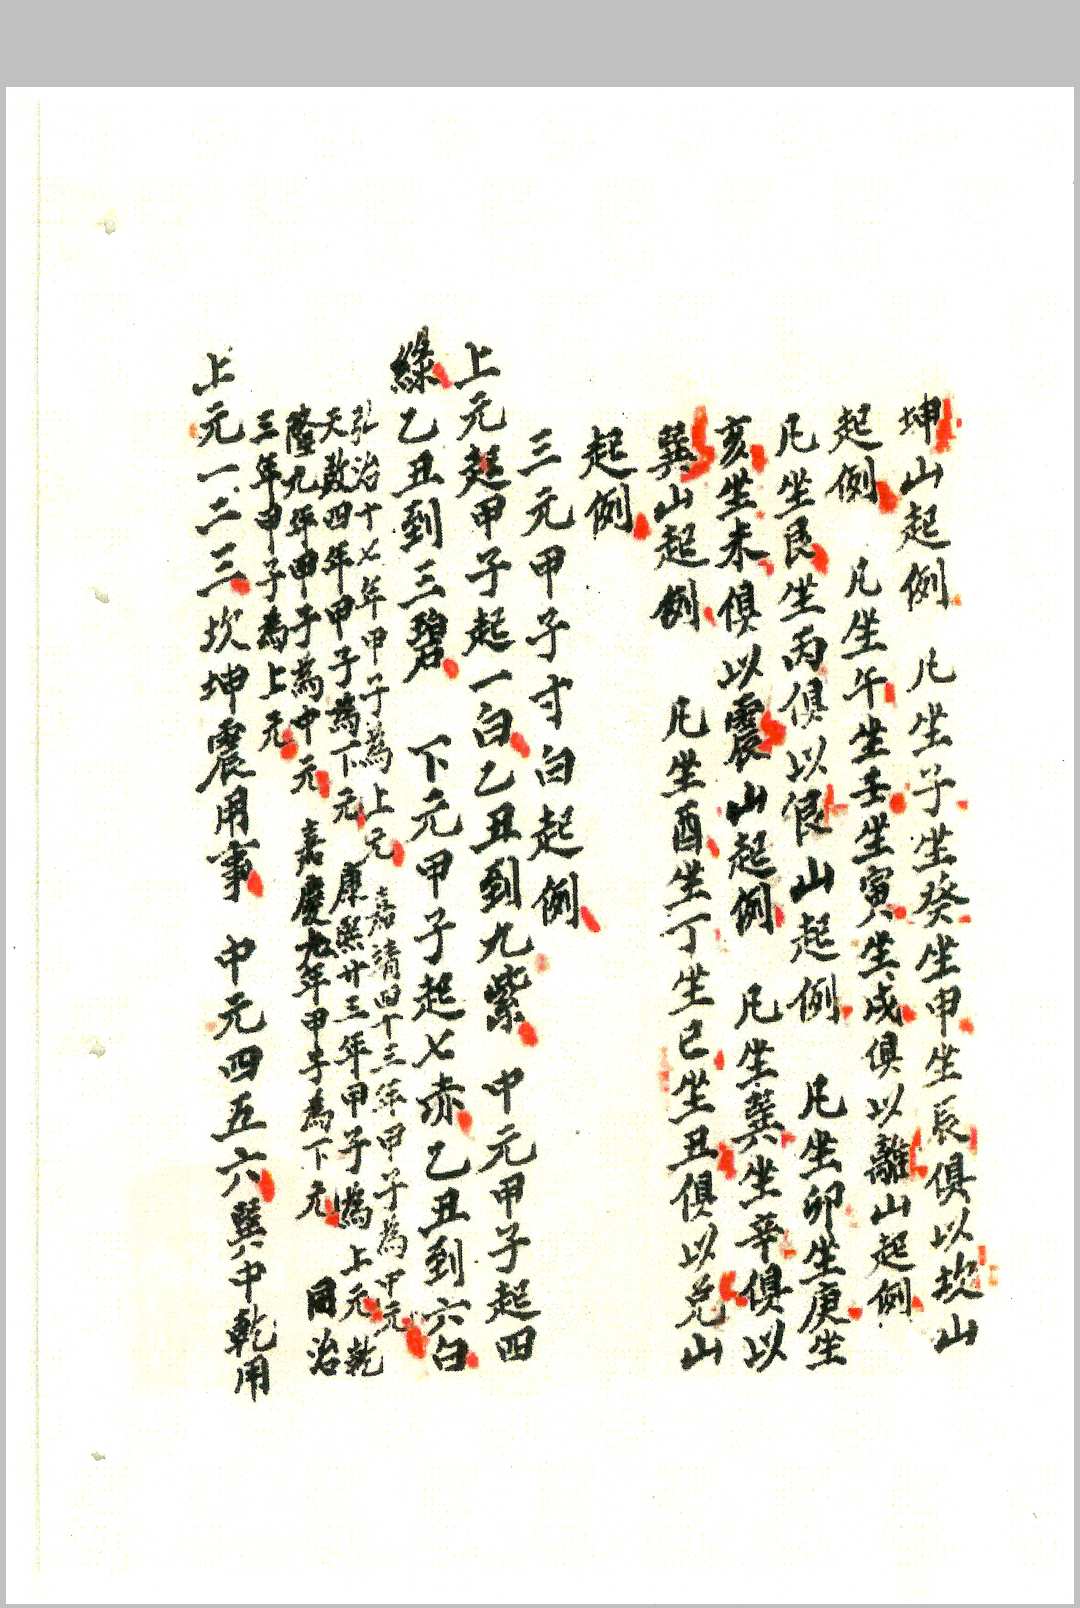 坤山起例　凡坐子坐癸坐申坐辰俱以坎山
起例　凡坐午坐壬坐寅坐戌俱以離山起例
凡坐艮坐丙俱以艮山起例　凡坐卯坐庚坐
亥坐未俱以震山起例　凡坐巽坐辛俱以
巽山起例　凡坐酉坐丁坐巳坐丑俱以兌山
起例
三元甲子寸白起例
上元起甲子起一白乙丑到九紫　中元甲子起四
綠乙丑到三碧　下元甲子起七赤乙丑到六白
弘治十七年甲子為上元　嘉靖四十三年甲子為中元
天啟四年甲子為下元　康熙廿三年甲子為上元　乾
隆九年甲子為中元　嘉慶九年甲子為下元　同治
三年甲子為上元
上元一二三坎坤震用事　中元四五六巽中乾用